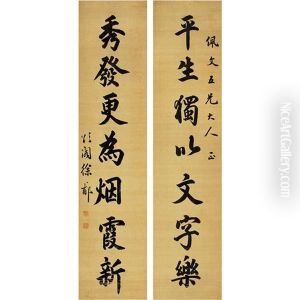 佩文五兄大人正
平生獨以文字樂
秀發更為烟霞新
徐郙
NiceArtGallery.com